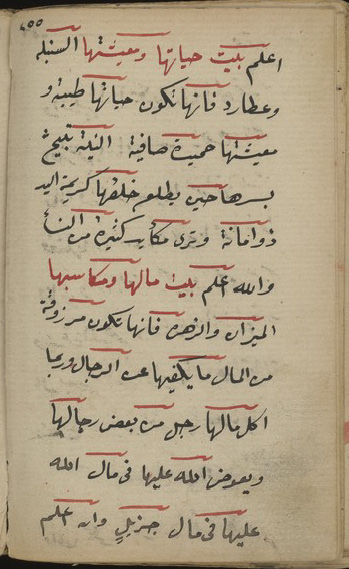 ٤٥٥
اعلم بيت حياتها ومعيشتها السنبله
وعطارد فانها تكون حياتها طيبة و
معيشتها حميدة صافية النية تبيح
بسرها حين يطلع خلقها كريمة اليد
ذو امانة وترى مكايد كثيرة من النسا
والله اعلم بيت مالها ومكاسبها
الميزان والزهره فانها تكون مرزوقة
من المال ما يكفيها عن الرجال وربما
اكل مالها رجل من بعض رجالها
ويعوض الله عليها فى مال الله
عليها فى مال جزيل والله اعلم